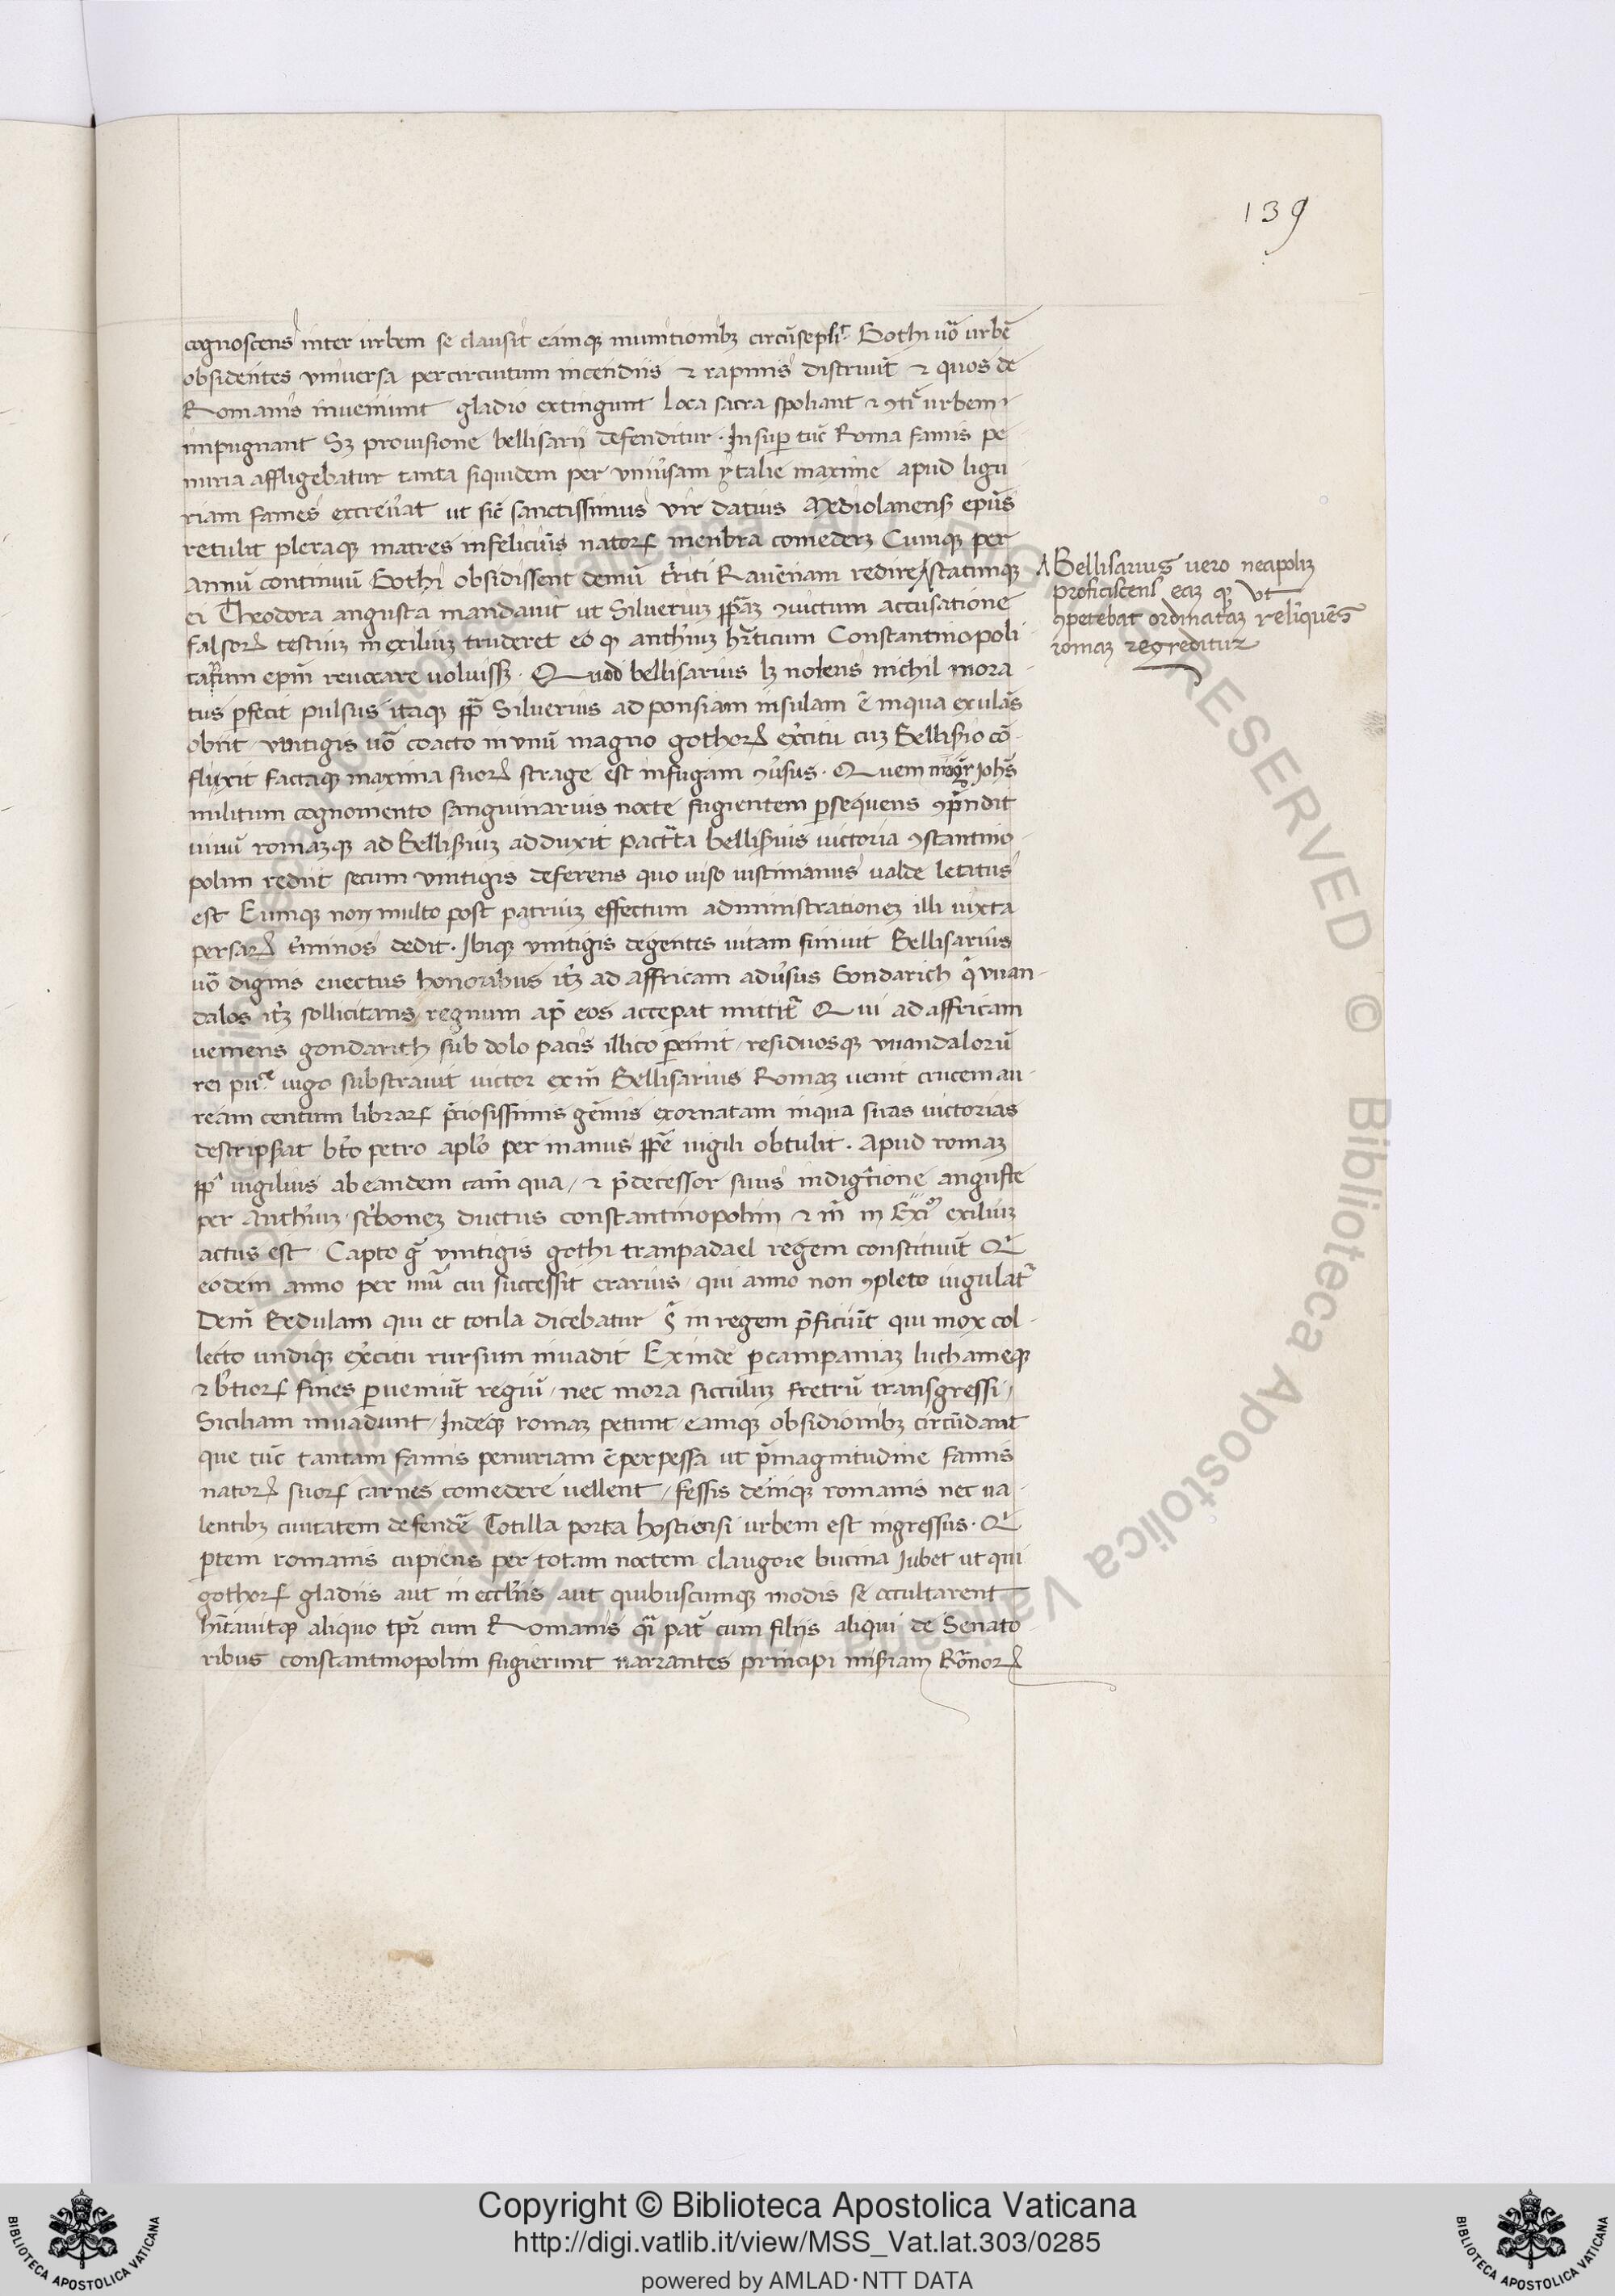 139
cognoscens inter urbem se clausit eamqꝫ munitionibꝫ circūsepsit Gothi uō urbē
obsidentes vniuersa percircuitum incendiis ⁊ rapinis distruūt ⁊ quos de
Romanis inveniunt gladio extingunt Loca sacra spoliant ⁊ urbem
impugnant Sꝫ provisione bellisarii defenditur. Insuꝑ tūc Roma famis pe
nuria affligebatur tanta siquidem per vniuersam ytalie maxime apud ligu
riam fames excreuat ut sic̄ sanctissimus vir datius Mediolanensis epūs
retulit plerasqꝫ matres infelicium natoꝝ menbra comederꝫ Cumqꝫ per
annū continuū Gothi obsidissent demū Rauēnam redire statimqꝫ
ei Theodora augusta mandauit ut Silueriuꝫ ꝯuictum accusatione
falsoꝝ testiuꝫ in exiliuꝫ truderet eo qꝫ anth'iuꝫ hr̄ticum Constantinopoli
tanum epm̄ reuocare uoluissꝫ. Quod bellisarius lꝫ nolens nichil mora
tus ꝑfecit pulsus itaqꝫ Siluerius ad ponsiam insulam ē inqua exulās
obiit vuitigis uō coacto in vnū magno gothoꝝ ex̄citu cuꝫ Bellisario cō
fluxit factaqꝫ maxima suoꝝ strage est infugam ꝯūsus. Quem Johēs
militum cognomento sanguinarius nocte fugientem ꝑsequens ꝯp̄ndit
uiuū romamqꝫ ad Bellisariuꝫ adduxit bellisarius uictoria ꝯstantino
polim rediit secum vuitigis deferens quo uiso iustinianus ualde letatus
est Eumqꝫ non multo post patriuꝫ effectum administrationeꝫ illi iuxta
persaꝝ t̄minos dedit. Ibiqꝫ vuitigis degentes uitam finiuit Bellisarius
uō dignis euectus honoribus itꝫ ad affricam adūsus Gondarich q̄ vuan
dalos itꝫ sollicitans regnum ap̄ eos accepat mittit̄ Qui ad affricam
ueniens gondarich sub dolo pacis illico ꝑemit residuosqꝫ vuandalorū
rei iugo substrauit uictor exin̄ Bellisarius Romaꝫ uenit crucem au
ream centum libraꝝ p̄ciosissimis gēmis exornatam inqua suas uictorias
descripsat bt̄o petro aplo per manus uigili obtulit. Apud romaꝫ
uigilius ab eandem cām qua ⁊ p̄decessor suus indigt̄ione auguste
per Anth'iuꝫ sc'boneꝫ ductus constantinopolim ⁊ in exiliuꝫ
actus est Capto g° vuitigis gothi tranpadael regem constituūt Q
eodem anno per cui successit erarius qui anno non ꝯpleto iugulat̄
Dem̄ Bedulam qui et totila dicebatur in regem p̄ficiūt qui mox col
lecto undiqꝫ ex̄citu rursum inuadit Exinde ꝑcampaniaꝫ luchameqꝫ
⁊ b'tioꝝ fines ꝑueniūt regiū nec mora sicculuꝫ fretrū transgressi
Siciliam inuadunt Indeqꝫ romaꝫ petunt eamqꝫ obsidionibꝫ circūdant
que tūc tantam famis penuriam ē perpessa ut p̄magnitudine famis
natoꝝ suoꝝ carnes comedere uellent fessis deniqꝫ romanis nec ua
lentibꝫ ciuitatem defendē Totilla porta hostiensi urbem est ingressus. Q
ꝑtem romanis cupiens per totam noctem clangore bucina Jubet ut qui
gothoꝝ gladiis aut in eccliis aut quibuscumqꝫ modis se occultarent
aliquo tpr̄ cum Romanis pat̄ cum filiis aliqui de Senato
ribus constantinopolim fugierunt narrantes principi misīam Rōnoꝝ
Bellisarius uero neapolim
proficiscens eaꝫ qꝫ ut
ꝯpetebat ordinataꝫ reliquēs
romaꝫ regreditur
Copyright © Biblioteca Apostolica Vaticana
http://digi.vatlib.it/view/MSS_Vat.lat.303/0285
powered by AMLAD·NTT DATA
BIBLIOTECA APOSTOLICA VATICANA
BIBLIOTECA APOSTOLICA VATICANA